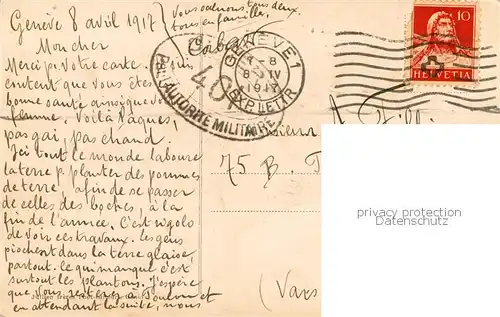 Genève 8 avril 1917
Mon cher
Merci p. votre carte.
content que vous êtes en
bonne santé ainsi que
femme. Voilà Pâques,
pas gai, pas chaud.
Ici tout le monde laboure
la terre p. planter des pommes
de terre, afin de se passer
de celles des boches, à la
fin de l'année. C'est rigolo
de voir ces travaux. Les gens
piochent dans la terre glaise
partout. Ce qui manque c'est
surtout les plantons. J'espère
que vous resterez à Toulon et
en attendant la suite, nous
vous embrassons tous deux
tous en famille.
GENÈVE 1
7-8
8 IV
1917
EXP. LETTR.
PAR AUTORITÉ MILITAIRE
10
HELVETIA
75 B.
(Vars
privacy protection
Datenschutz